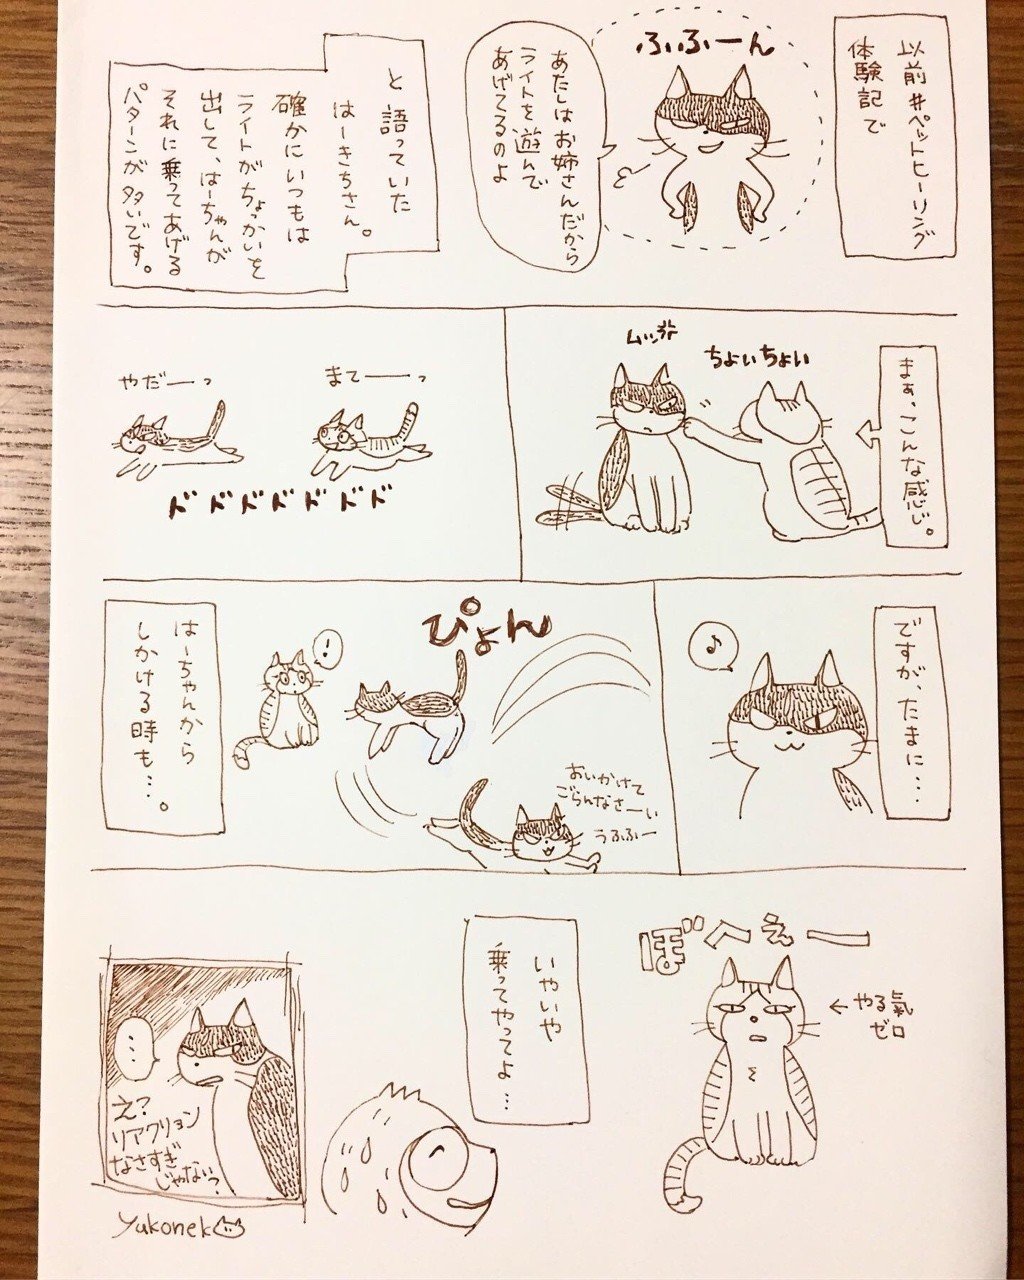 以前#ペットヒーリング
体験記で
ふふーん
あたしはお姉さんだから
ライトを遊んで
あげてるのよ
と語っていた
はーきちさん。
確かにいつもは
ライトがちょっかいを
出して、はーちゃんが
それに乗ってあげる
パターンが多いです。
まぁ、こんな感じ。
ちょいちょい
まてーーっ
やだーーっ
ドドドドドドド
ですが、たまに…
♪
ぴょん
!
おいかけて
ごらんなさーい
うふふー
はーちゃんから
しかける時も…。
ぼへぇーー
←やる氣
ゼロ
いやいや
乗ってやってよ…
…
え?
リアクション
なさすぎ
じゃない?
yukoneko